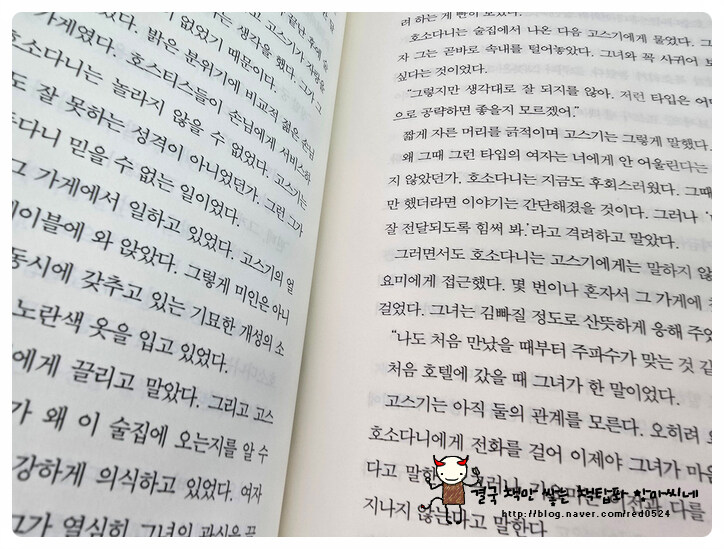 끝난 후에 술
고스기가 자랑을
는 생각을 했다. 그가 그
가게였다.
없었기 때문이다.
밝은 분위기에 비교적 젊은 손님
호스티스들이 손님에게 서비스하
다니는 놀라지 않을 수 없었다. 고스기는
도 잘 못하는 성격이 아니었던가. 그런 그가
다니 믿을 수 없는 일이었다.
그 가게에서 일하고 있었다. 고스기의 얼
테이블에 와 앉았다. 그렇게 미인은 아니
동시에 갖추고 있는 기묘한 개성의 소
노란색 옷을 입고 있었다.
에게 끌리고 말았다. 그리고 고스
가 왜 이 술집에 오는지를 알 수
강하게 의식하고 있었다. 여자
그가 열심히 그녀의 관심을 끌
려 하는 게 훤히 보였다.
호소다니는 술집에서 나온 다음 고스기에게 물었다. 그
자 그는 곧바로 속내를 털어놓았다. 그녀와 꼭 사귀어 보
싶다는 것이었다.
"그렇지만 생각대로 잘 되지를 않아. 저런 타입은 어떤
으로 공략하면 좋을지 모르겠어."
짧게 자른 머리를 긁적이며 고스기는 그렇게 말했다.
왜 그때 그런 타입의 여자는 너에게 안 어울린다는
지 않았던가. 호소다니는 지금도 후회스러웠다. 그때
만 했더라면 이야기는 간단해졌을 것이다. 그러나
잘 전달되도록 힘써 봐.'라고 격려하고 말았다.
그러면서도 호소다니는 고스기에게는 말하지 않
요미에게 접근했다. 몇 번이나 혼자서 그 가게에
걸었다. 그녀는 김빠질 정도로 산뜻하게 응해 주었
"나도 처음 만났을 때부터 주파수가 맞는 것 같
처음 호텔에 갔을 때 그녀가 한 말이었다.
고스기는 아직 둘의 관계를 모른다. 오히려
호소다니에게 전화를 걸어 이제야 그녀가 마음
다고 말한다. 그러나 가요미는 이전과 다를
지나지 않는다고 말한다.
결국 책만 쌓는 책탑파 한마씨네
http://blog.naver.com/red0524